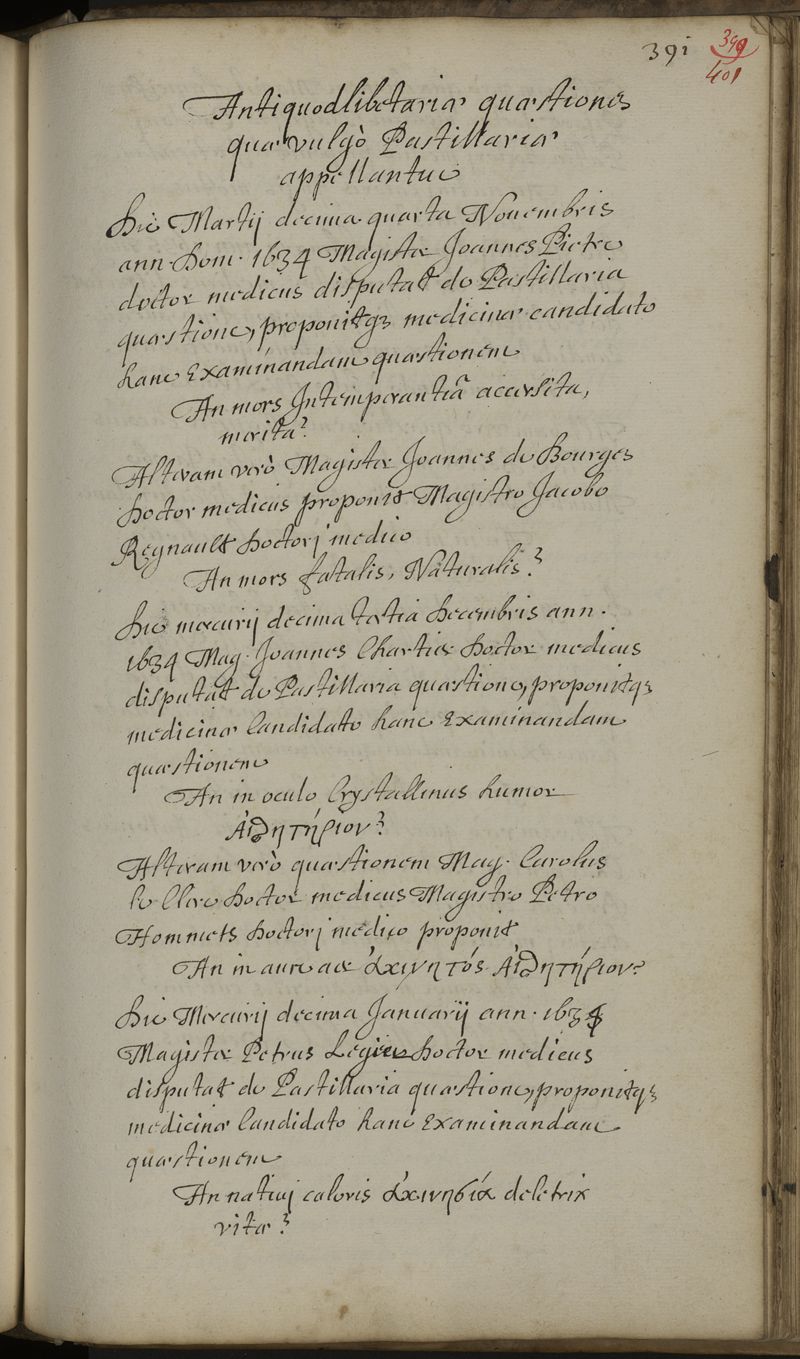 391 399
401
Antiquodlibetariæ quæstiones
quæ vulgò Pastillariæ
appellantur
Die Martij decima quarta Nouembris
ann. Dom. 1634 Magister Joannes Pietre
doctor medicus disputat de Pastillaria
quæstione, proponitq3 medicinæ candidato
hanc Examinandam quæstionem
An mors Intemperantiâ accersita,
merita?
Alteram verò Magister Joannes de Bourges
Doctor medicus proponit Magistro Jacobo
Regnault Doctorj medico
An mors fatalis, Naturalis?
Die mercurij decima tertia Decembris ann.
1634 Mag. Joannes Chartier Doctor medicus
disputat de Pastillaria quæstione, proponitq3
medicinæ Candidato hanc Examinandam
quæstionem
An in oculo Crystallinus humor
Αἰϑητήριον?
Alteram verò quæstionem Mag. Carolus
le Clerc Doctor medicus Magistro Petro
Hommets Doctorj medico proponit
An in aure aer ἀκινητός Αἰϑητήριον?
Die Mercurij decima Januarij ann. 1634
Magister Petrus Legier Doctor medicus
disputat de Pastillaria quæstione, proponitq3
medicinæ Candidato hanc Examinandam
quæstionem
An natiuj caloris ἀκινησία deletrix
vitæ?